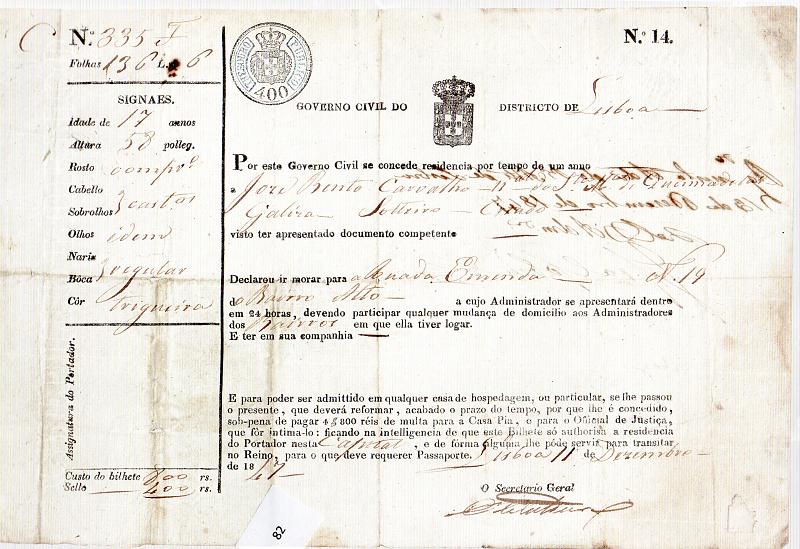 N.º 335 F
Folhas 136 L. 6
SIGNAES.
Idade de 17 annos
Altura 58 polleg.
Rosto comprº
Cabello
Sobrolhos castos
Olhos idem
Naris
Bôca regular
Côr trigueira
Assignatura do Portador.
Custo do bilhete 800 rs.
Sello 400 rs.
400
N.º 14.
GOVERNO CIVIL DO DISTRICTO DE Lisboa
Por este Governo Civil se concede residencia por tempo de um anno
a José Bento Carvalho
Galiza Solteiro Criado
visto ter apresentado documento competente
Declarou ir morar para a Rua da Emenda N. 19
do Bairro Alto a cujo Administrador se apresentará dentro
em 24 horas, devendo participar qualquer mudança de domicilio aos Administradores
dos Bairros em que ella tiver logar.
E ter em sua companhia
E para poder ser admittido em qualquer casa de hospedagem, ou particular, se lhe passou
o presente, que deverá reformar, acabado o prazo do tempo, por que lhe é concedido,
sob-pena de pagar 4$800 réis de multa para a Casa Pia, e para o Official de Justiça,
que fôr intima-lo: ficando na intelligencia de que este Bilhete só authorisa a residencia
do Portador nesta Capital, e de forma alguma lhe póde servir para transitar
no Reino, para o que deve requerer Passaporte. Lisboa 11 de Dezembro
de 1847
O Secretario Geral
82